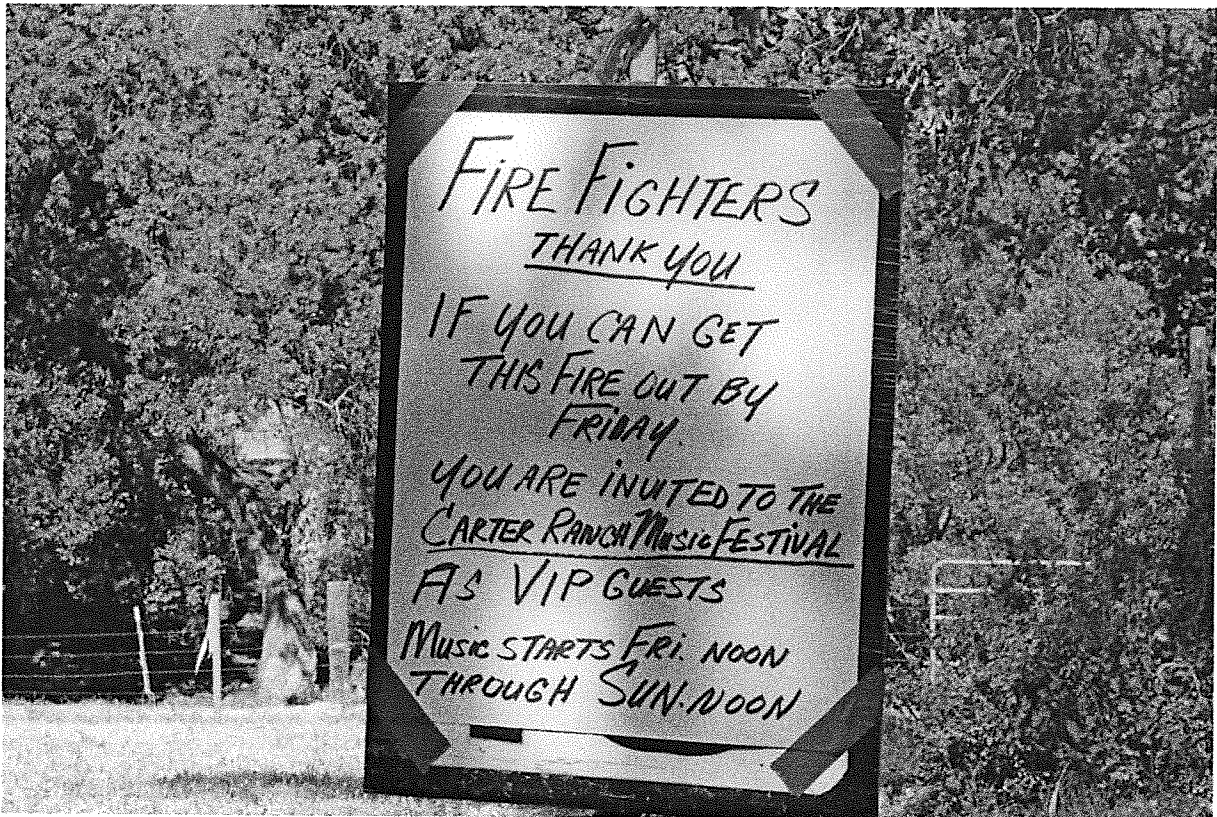 FIRE FIGHTERS
THANK YOU
IF YOU CAN GET
THIS FIRE OUT BY
FRIDAY.
YOU ARE INVITED TO THE
CARTER RANCH MUSIC FESTIVAL
AS VIP GUESTS
MUSIC STARTS FRI. NOON
THROUGH SUN. NOON